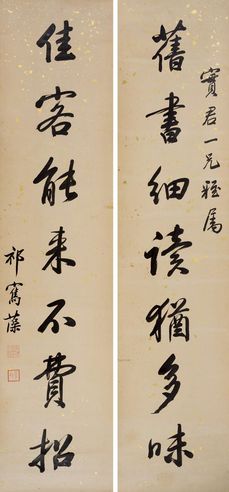 寶君一兄雅属
舊書細读猶多味
佳客能来不費招
祁寯藻